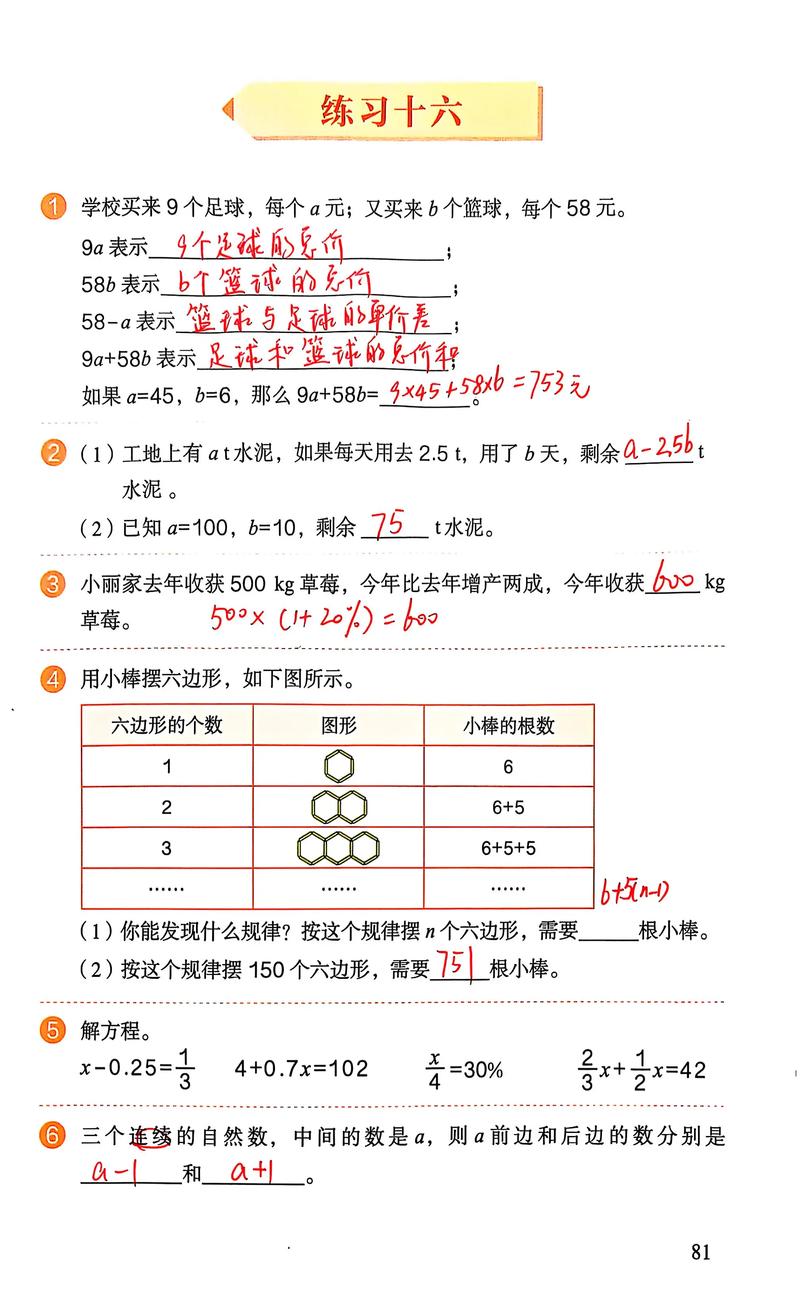 练习十六
1 学校买来 9 个足球，每个 a 元；又买来 b 个篮球，每个 58 元。
9a 表示 9个足球的总价；
58b 表示 b个篮球的总价；
58-a 表示 篮球与足球的单价差；
9a+58b 表示 足球和篮球的总价和；
如果 a=45，b=6，那么 9a+58b= 9×45+58×b=753元。
2 （1）工地上有 a t 水泥，如果每天用去 2.5 t，用了 b 天，剩余 a-2.5b t
水泥 。
（2）已知 a=100，b=10，剩余 75 t水泥。
3 小丽家去年收获 500 kg 草莓，今年比去年增产两成，今年收获 600 kg
草莓。 500×(1+20%)=600
4 用小棒摆六边形，如下图所示。
六边形的个数 图形 小棒的根数
1 6
2 6+5
3 6+5+5
…… …… …… 6+5(n-1)
（1）你能发现什么规律？按这个规律摆 n 个六边形，需要______根小棒。
（2）按这个规律摆 150 个六边形，需要 751 根小棒。
5 解方程。
x-0.25=1/3 4+0.7x=102 x/4=30% 2/3x+1/2x=42
6 三个连续的自然数，中间的数是 a，则 a 前边和后边的数分别是
a-1 和 a+1。
81